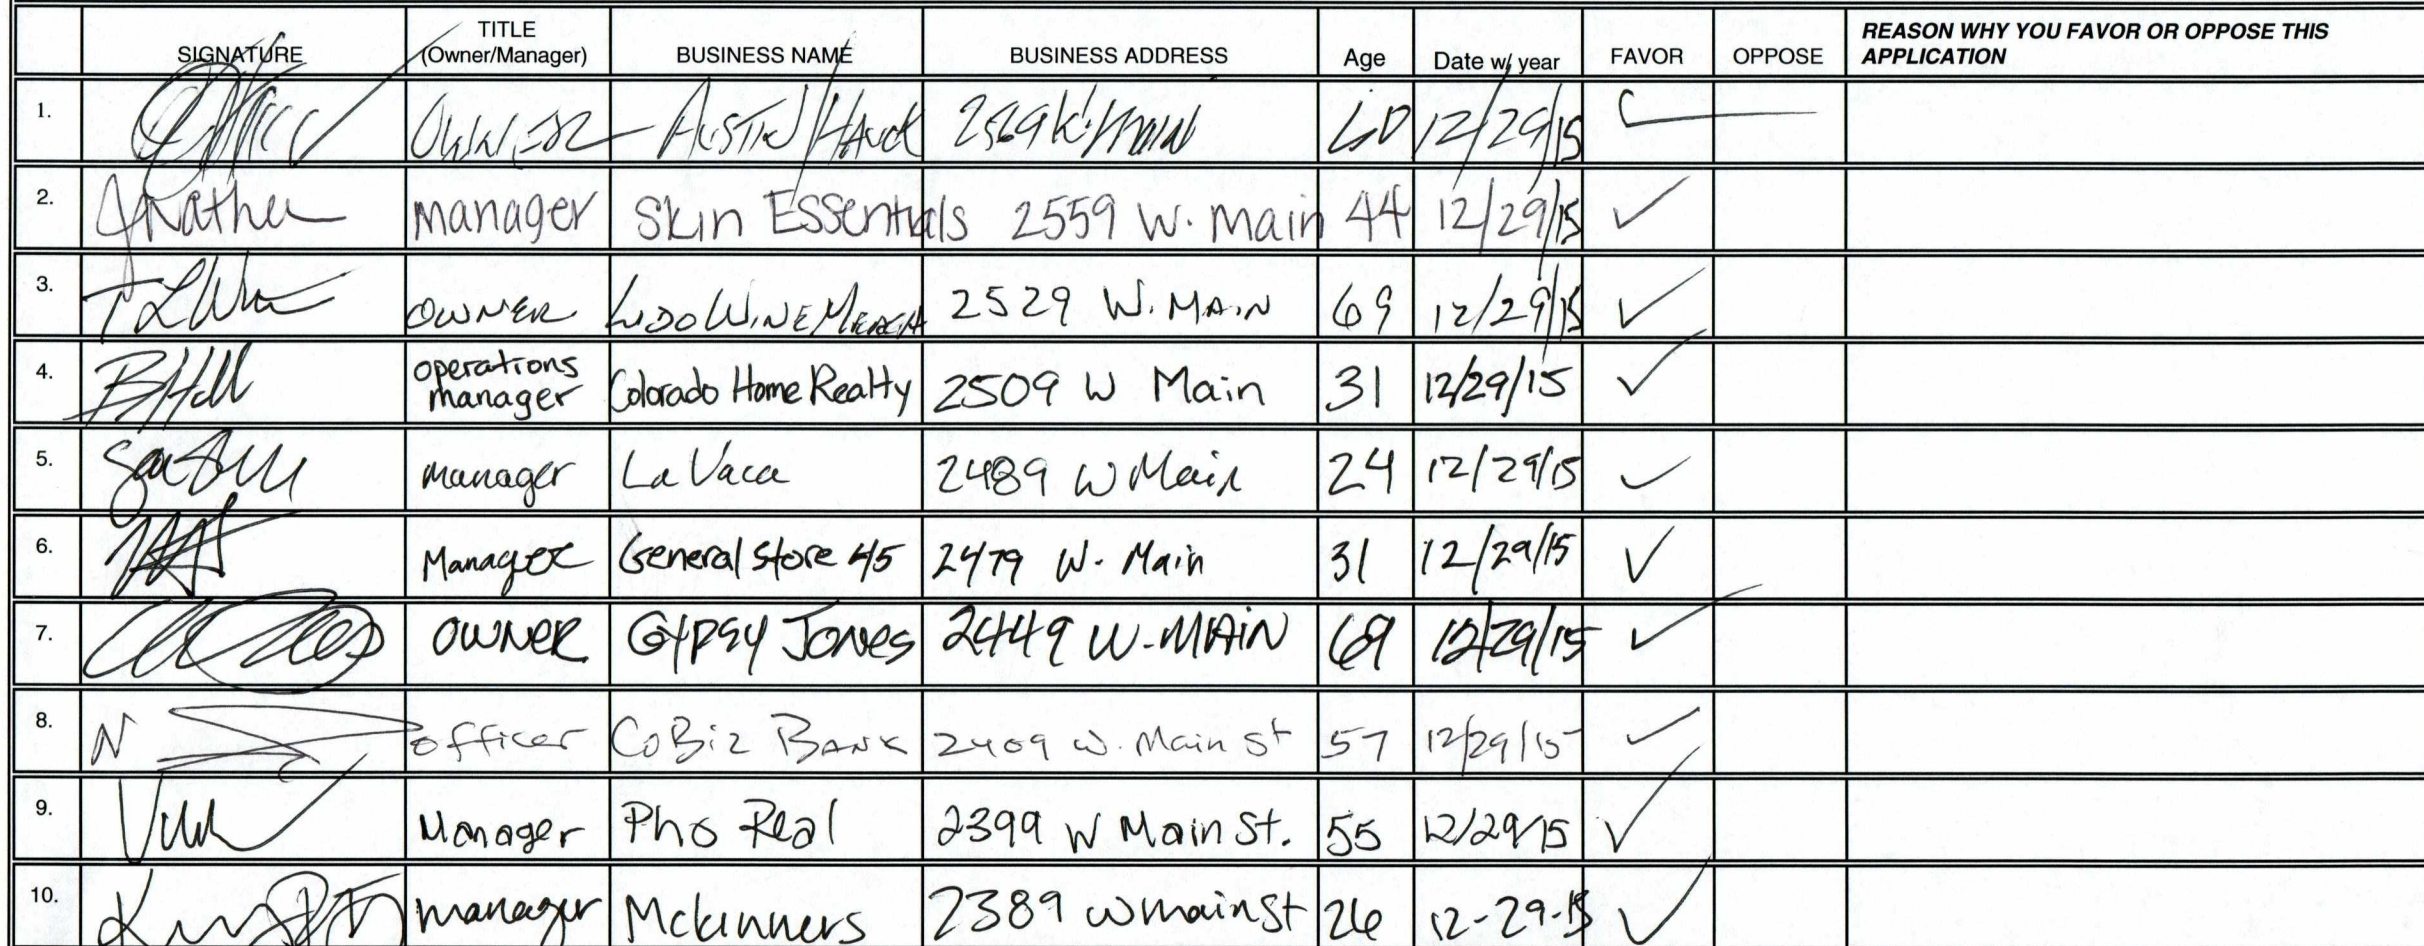 SIGNATURE TITLE (Owner/Manager) BUSINESS NAME BUSINESS ADDRESS Age Date w/ year FAVOR OPPOSE REASON WHY YOU FAVOR OR OPPOSE THIS APPLICATION
1. OWNER 12/29/15
2. manager Skin Essentials 2559 W. Main 44 12/29/15
3. OWNER 2529 W. MAIN 69 12/29/15
4. operations manager Colorado Home Realty 2509 W Main 31 12/29/15
5. manager La Vaca 2489 W Main 24 12/29/15
6. Manager General Store 45 2479 W. Main 31 12/29/15
7. OWNER GYPSY JONES 2449 W. MAIN 69 12/29/15
8. officer CoBiz BANK 2409 W. Main St 57 12/29/15
9. Manager Pho Real 2399 W Main St. 55 12/29/15
10. manager Mckinners 2389 W main St 26 12-29-15